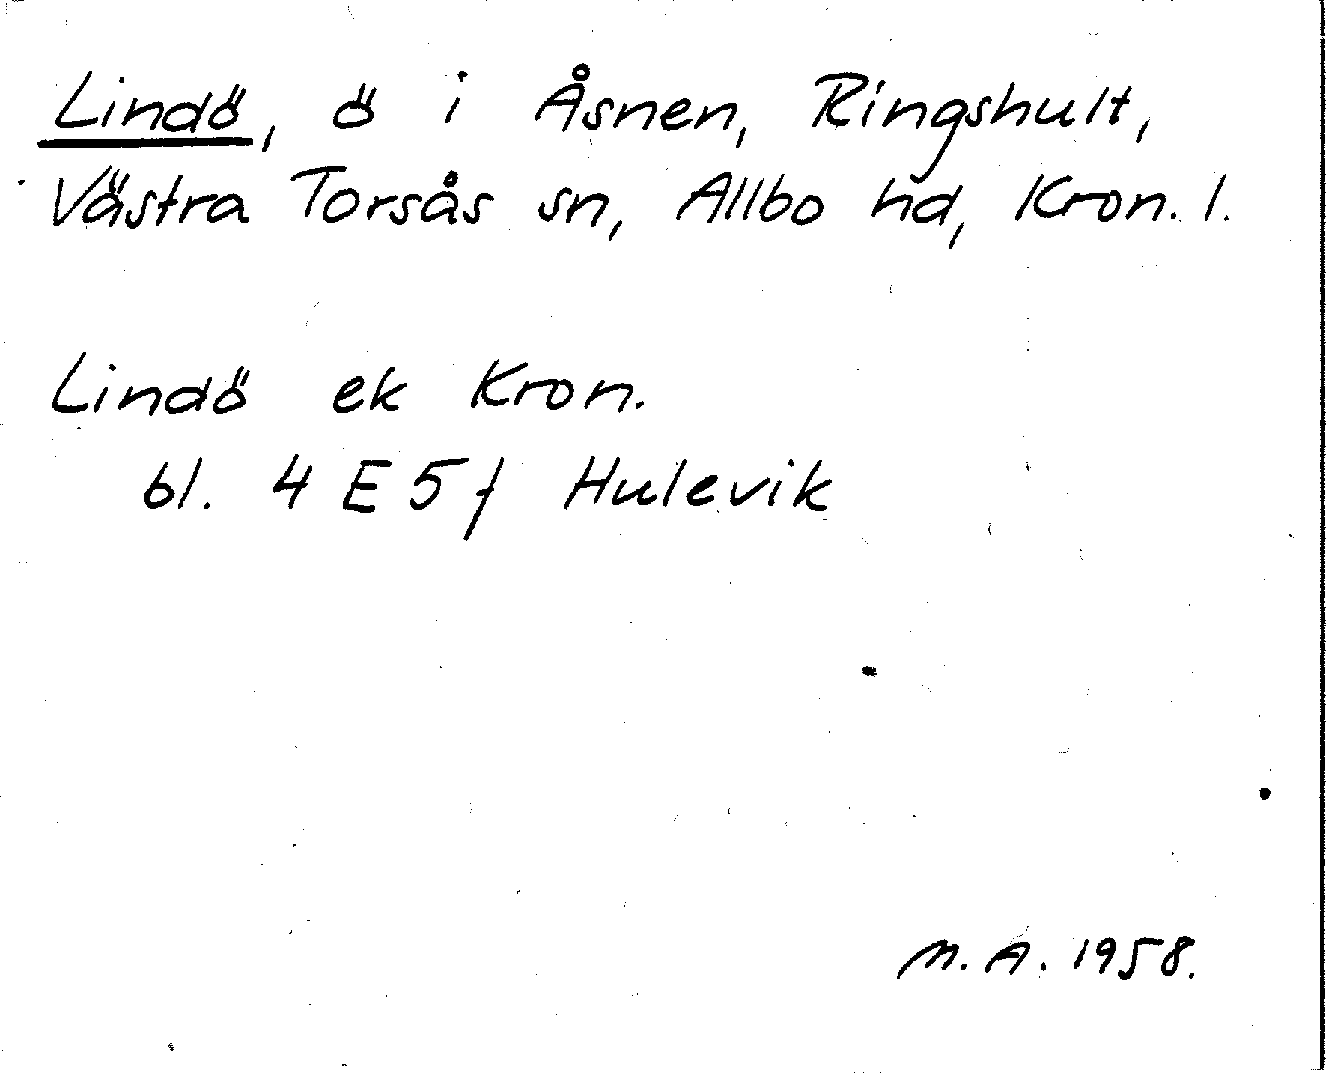 Lindö, ö i Åsnen, Ringshult,
Västra Torsås sn, Allbo hd, Kron. l.
Lindö ek Kron.
bl. 4 E 5 f Hulevik
M. A. 1958.